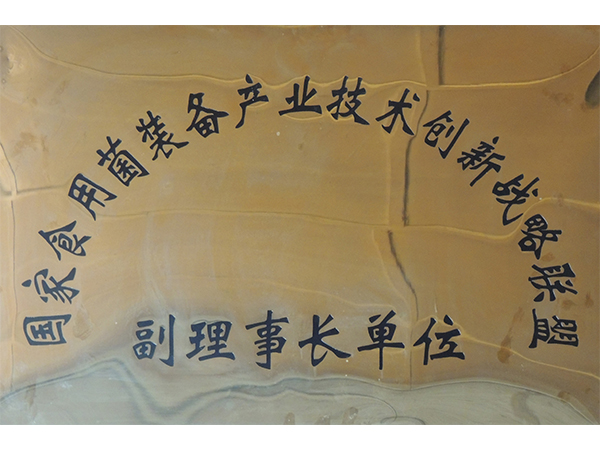 国家食用菌装备产业技术创新战略联盟
副理事长单位